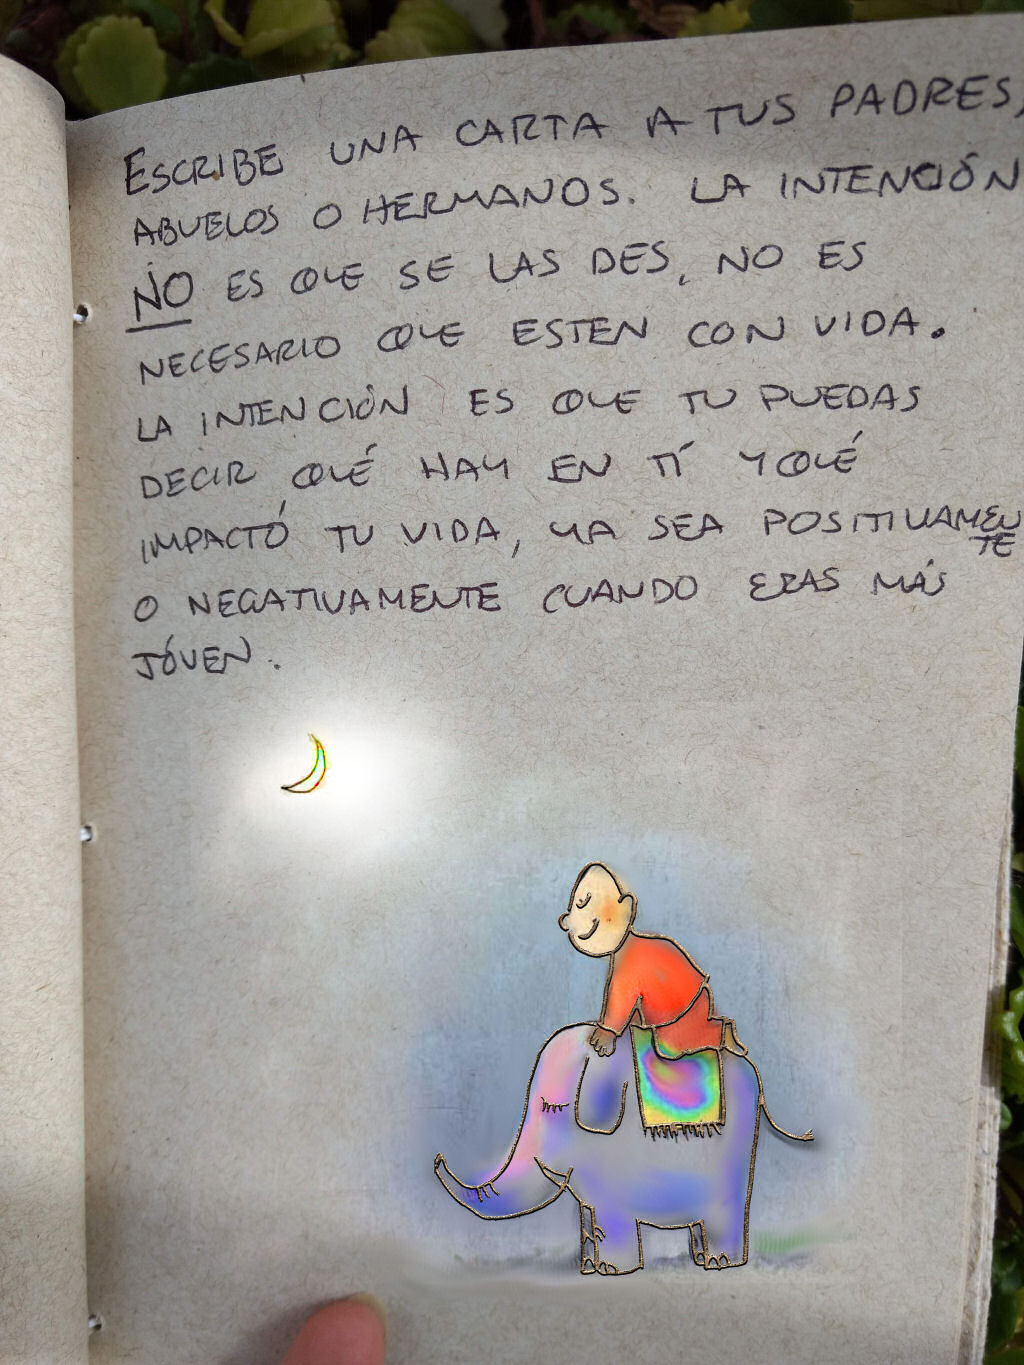 ESCRIBE UNA CARTA A TUS PADRES,
ABUELOS O HERMANOS. LA INTENCIÓN
NO ES QUE SE LAS DES, NO ES
NECESARIO QUE ESTEN CON VIDA.
LA INTENCIÓN ES QUE TU PUEDAS
DECIR QUÉ HAY EN TÍ Y QUÉ
IMPACTÓ TU VIDA, YA SEA POSITIVAMENTE
O NEGATIVAMENTE CUANDO ERAS MÁS
JÓVEN.